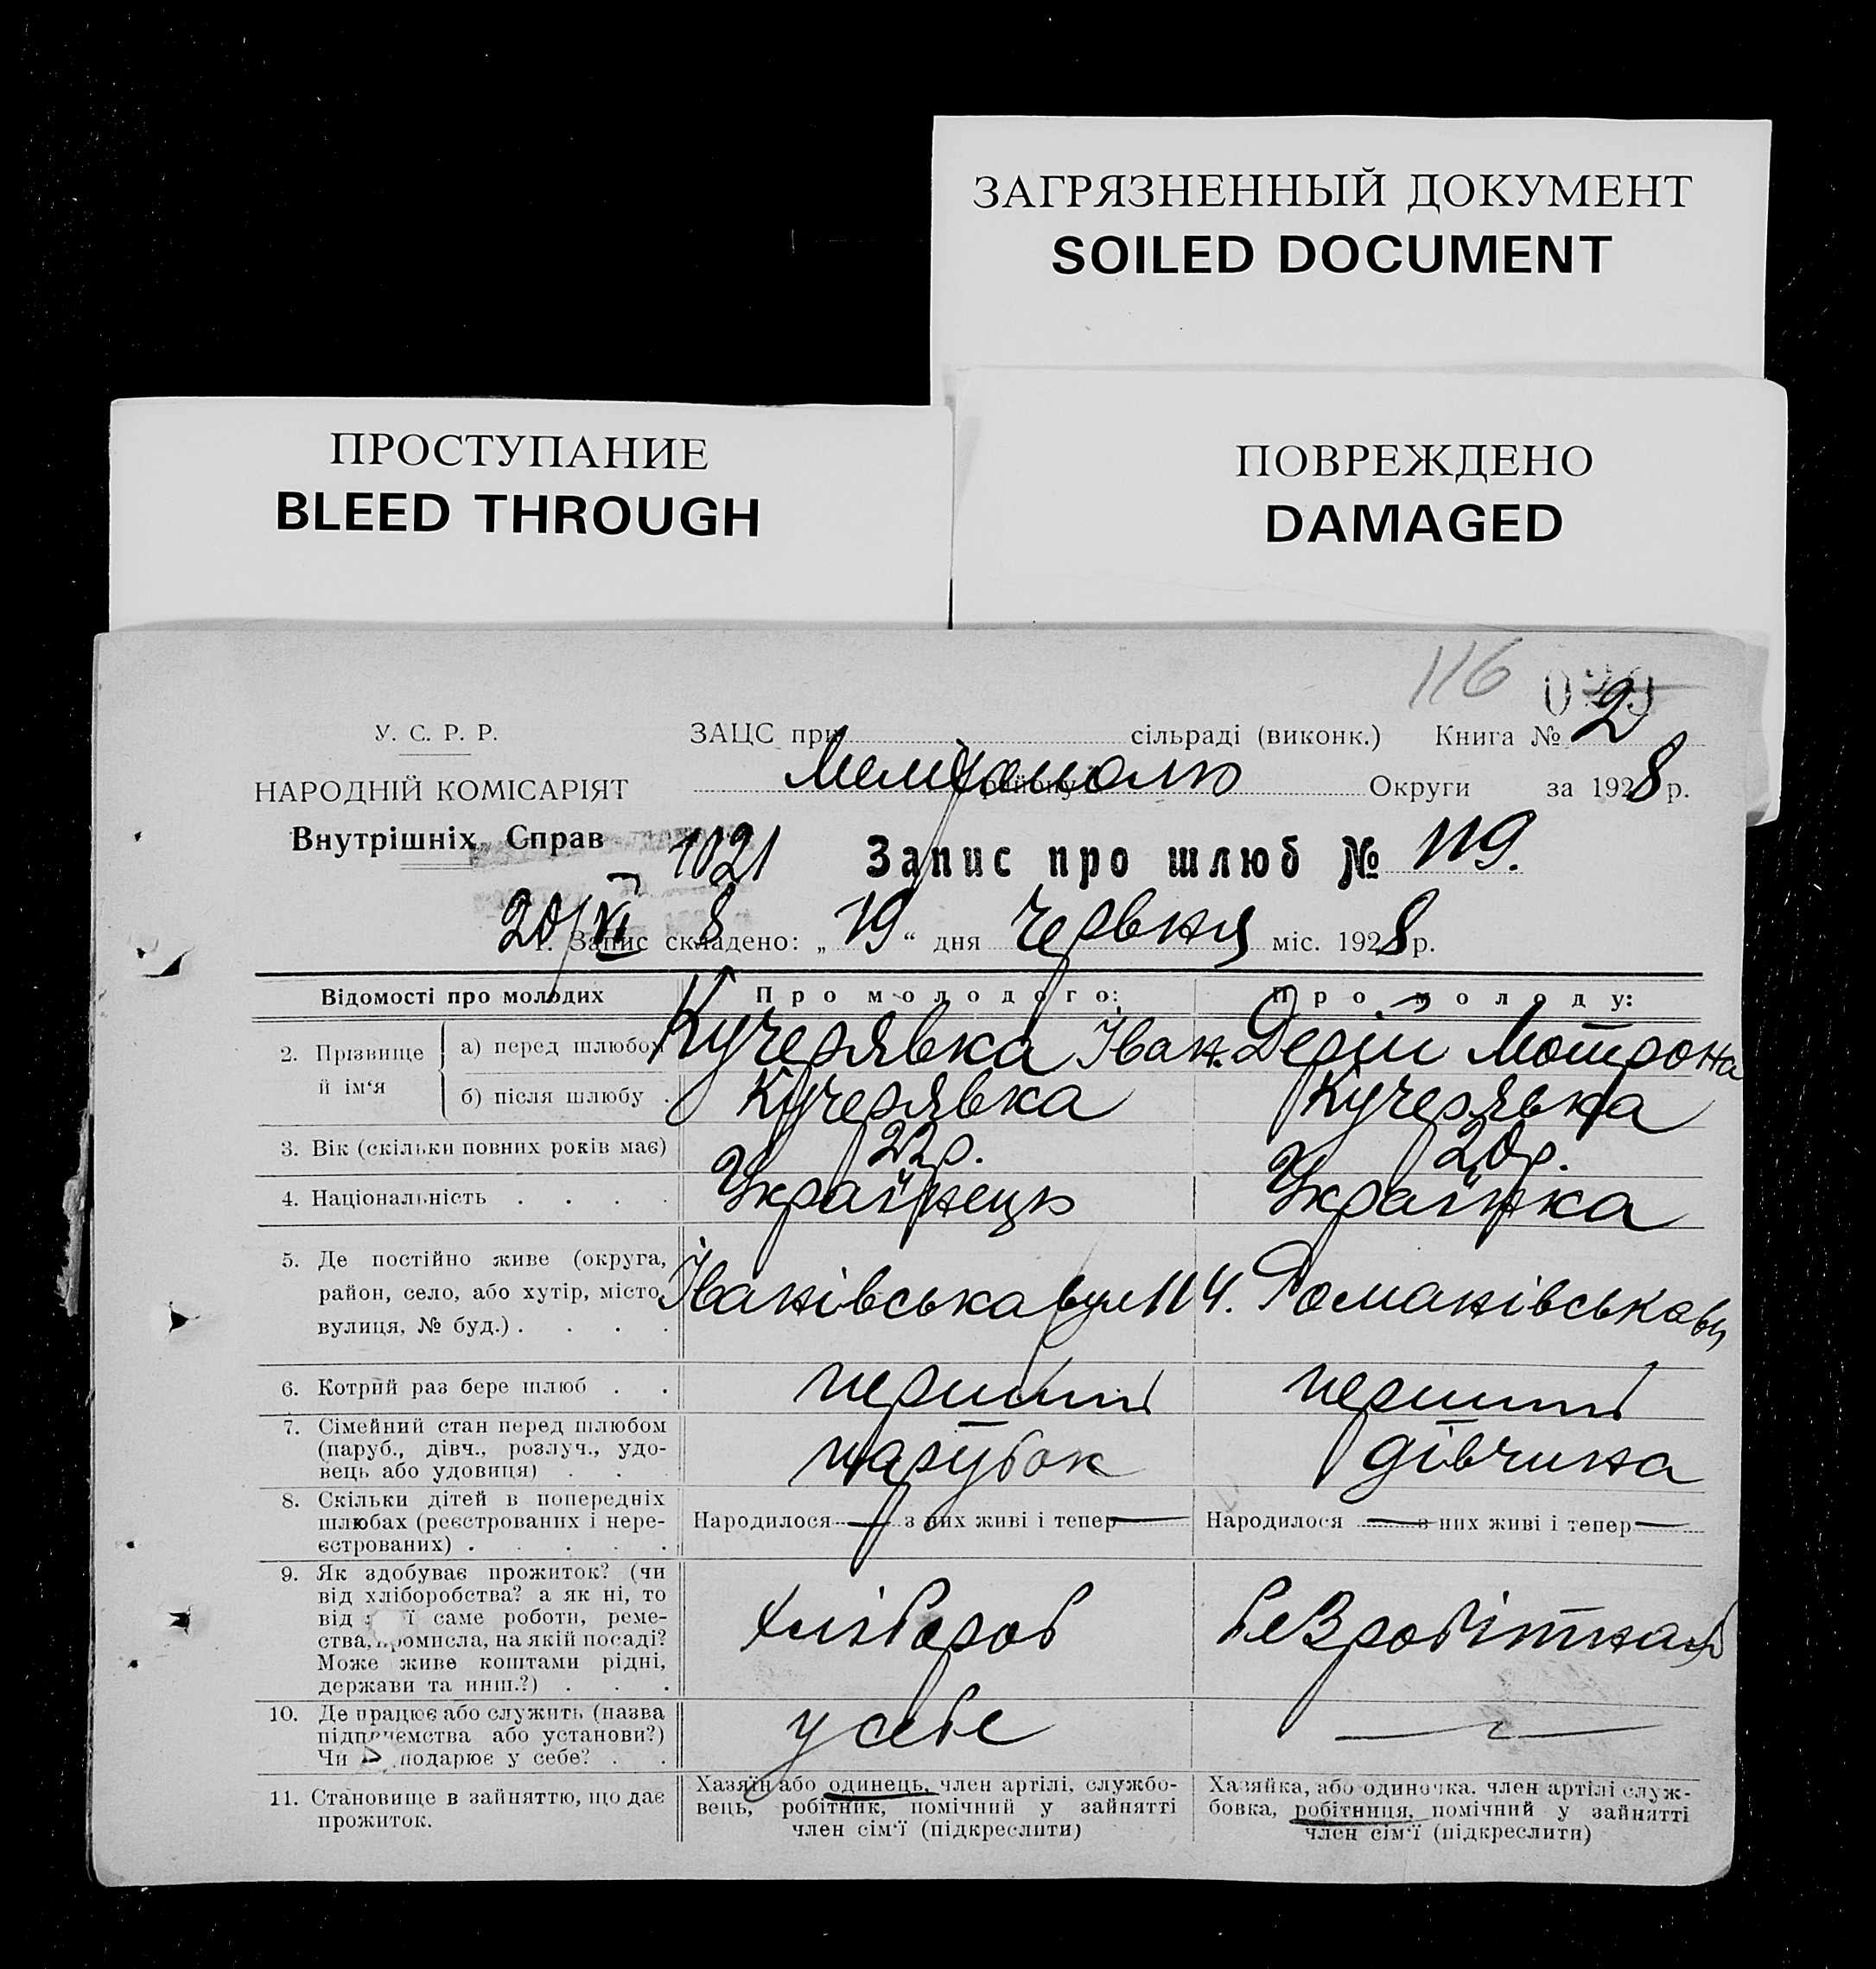 ЗАГРЯЗНЕННЫЙ ДОКУМЕНТ
SOILED DOCUMENT
ПРОСТУПАНИЕ
BLEED THROUGH
ПОВРЕЖДЕНО
DAMAGED
116
У. С. Р. Р.
НАРОДНІЙ КОМІСАРІЯТ
Внутрішніх Справ
ЗАЦС при сільраді (виконк.) Книга № 2
району Округи за 1928 р.
1021 Запис про шлюб № 119.
20/VI 8
1. Запис складено: „19“ дня червня міс. 1928 р.
Відомості про молодих
Про молодого:
Про молоду:
2. Прізвище й ім‘я
а) перед шлюбом
Кучерявка Іван
Дерій Мотрона
б) після шлюбу .
Кучерявка
Кучерявка
3. Вік (скільки повних років має)
22 р.
20 р.
4. Національність . . . .
Українець
Українка
5. Де постійно живе (округа,
район, село, або хутір, місто,
вулиця, № буд.) . . . .
Іванівська вул 114.
Романівська ву
6. Котрий раз бере шлюб . .
перший
перший
7. Сімейний стан перед шлюбом
(паруб., дівч., розлуч., удо-
вець або удовиця) . . .
парубок
дівчина
8. Скільки дітей в попередніх
шлюбах (реєстрованих і нере-
єстрованих) . . . . .
Народилося — з них живі і тепер —
Народилося — з них живі і тепер —
9. Як здобуває прожиток? (чи
від хліборобства? а як ні, то
від ї саме роботи, реме-
ства, промисла, на якій посаді?
Може живе коштами рідні,
держави та инш.?) . . .
хлібороб
безробітная
10. Де працює або служить (назва
підприємства або установи?)
Чи подарює у себе? . .
у себе
—
11. Становище в зайняттю, що дає
прожиток.
Хазяїн або одинець, член артілі, службо-
вець, робітник, помічний у зайнятті
член сім‘ї (підкреслити)
Хазяйка, або одиночка, член артілі служ-
бовка, робітниця, помічний у зайнятті
член сім‘ї (підкреслити)